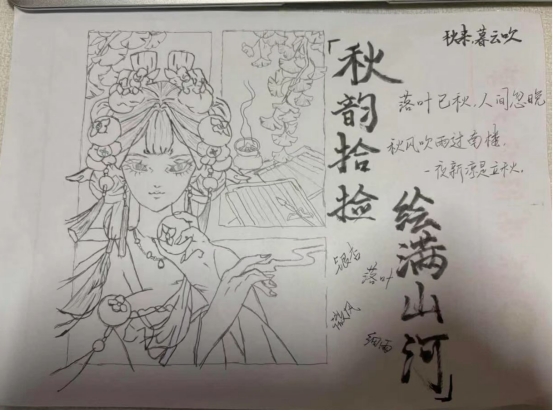 「秋韵拾捡
绘满山河」
秋来,暮云吹
落叶已秋,人间忽晚
秋风吹雨过南楼,
一夜新凉是立秋。
落叶
微风